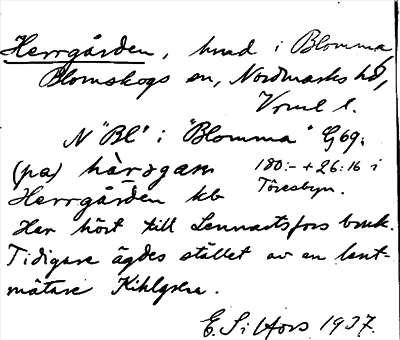 Herrgården, hmd i Blomma,
Blomskogs sn, Nordmarks hd,
Vrml l.
N "Bl" i "Blomma" G 69.
(pa) hàrgarn 180:- + 26:16 i
Herrgården kb Töresbyn.
Har hört till Lennartsfors bruk.
Tidigare ägdes stället av en lant-
mätare Kihlgren.
E. Silfors 1937.